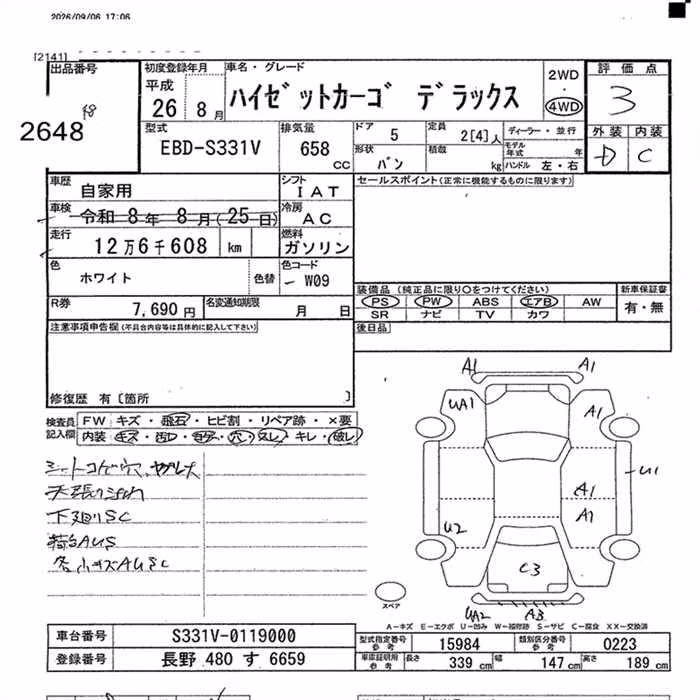 2026/09/06 17:06
[2141]
出品番号
2648
初度登録年月
平成
26 8 月
車名・グレード
ハイゼットカーゴ デラックス
2WD
・
4WD
評価点
3
外装 内装
D C
型式
EBD-S331V
排気量
658 CC
ドア 5
定員 2[4]人
ディーラー・並行
形状 バン
積載 kg
モデル年式 年
ハンドル 左・右
車歴
自家用
シフト
IAT
セールスポイント(正常に機能するものに限ります)
車検
令和 8年 8月(25日)
冷房
AC
走行
12万6千608 km
燃料
ガソリン
色
ホワイト
色替
色コード
W09
装備品 (純正品に限り○をつけてください)
PS PW ABS エアB AW
SR ナビ TV カワ
新車保証書
有・無
R券
7,690円
名変通知期限
月 日
後日品
注意事項申告欄(不具合内容等は具体的に記入して下さい)
修復歴 有〔箇所 〕
検査員記入欄
FW キズ・飛石・ヒビ割・リペア跡・×要
内装 キズ・汚レ・コゲ・穴・スレ・キレ・破レ
シートコゲ穴、ヤブレ大
下廻りSC
A1 A1
UA1 A1
U1
A1
A1
U2
C3
UA2 A3
スペア
A-キズ E-エクボ U-凹み W-補修跡 S-サビ C-腐食 XX-交換済
車台番号 S331V-0119000
登録番号 長野 480 す 6659
型式指定番号 参考 15984
類別区分番号 参考 0223
車庫証明用 参考 長さ 339 cm 幅 147 cm 高さ 189 cm